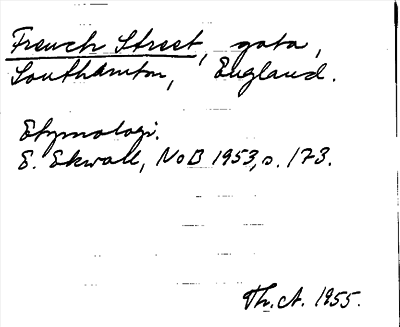 French Street, gata,
Southamton, England.
Etymologi.
E. Ekwall, NoB 1953, s. 173.
Th. A. 1955.